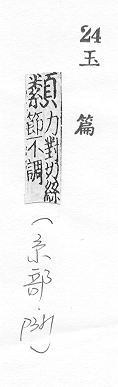 24
玉篇
纇
力對切絲
節不調
(糸部